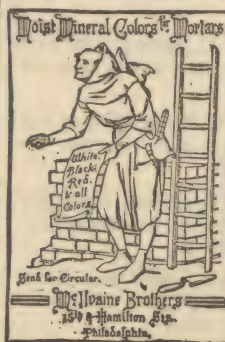 Moist Mineral Colors for Mortars
White.
Black.
Red.
& all
Colors.
Send for Circular.
McIlvaine Brothers
15th & Hamilton Sts.
Philadelphia.